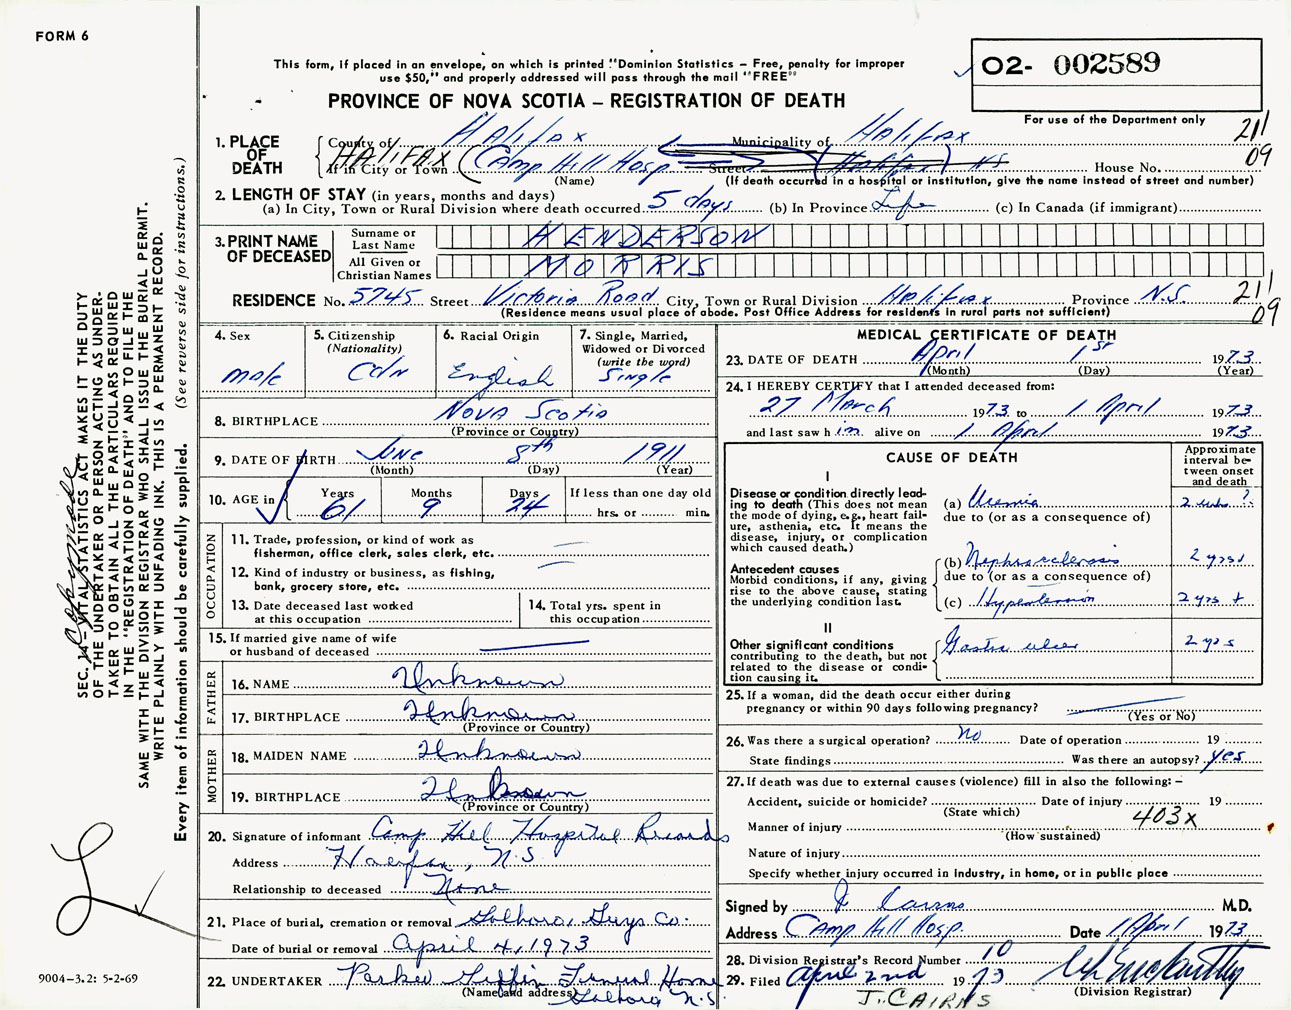 FORM 6
This form, if placed in an envelope, on which is printed "Dominion Statistics – Free, penalty for improper
use $50," and properly addressed will pass through the mail "FREE"
O2- 002589
For use of the Department only
PROVINCE OF NOVA SCOTIA – REGISTRATION OF DEATH
211
09
1. PLACE OF DEATH
County of Halifax Municipality of Halifax
If in City or Town HALIFAX (Camp Hill Hosp Street (Halifax) NS House No.
(Name) (If death occurred in a hospital or institution, give the name instead of street and number)
2. LENGTH OF STAY (in years, months and days)
(a) In City, Town or Rural Division where death occurred 5 days (b) In Province Life (c) In Canada (if immigrant)
3. PRINT NAME OF DECEASED
Surname or Last Name HENDERSON
All Given or Christian Names MORRIS
RESIDENCE No. 5745 Street Victoria Road City, Town or Rural Division Halifax Province N.S.
(Residence means usual place of abode. Post Office Address for residents in rural parts not sufficient)
211
09
4. Sex male
5. Citizenship (Nationality) Cdn
6. Racial Origin English
7. Single, Married, Widowed or Divorced (write the word) Single
8. BIRTHPLACE Nova Scotia
(Province or Country)
9. DATE OF BIRTH June 8th 1911
(Month) (Day) (Year)
10. AGE in Years 61 Months 9 Days 24 If less than one day old
hrs. or min.
OCCUPATION
11. Trade, profession, or kind of work as
fisherman, office clerk, sales clerk, etc.
12. Kind of industry or business, as fishing,
bank, grocery store, etc.
13. Date deceased last worked
at this occupation
14. Total yrs. spent in
this occupation
15. If married give name of wife
or husband of deceased
FATHER
16. NAME Unknown
17. BIRTHPLACE Unknown
(Province or Country)
MOTHER
18. MAIDEN NAME Unknown
19. BIRTHPLACE Unknown
(Province or Country)
20. Signature of informant Camp Hill Hospital Records
Address Halifax, N.S
Relationship to deceased None
21. Place of burial, cremation or removal Goldboro, Guys Co.
Date of burial or removal April 4, 1973
22. UNDERTAKER Parker Giffin Funeral Home
(Name and address) Goldboro N.S.
MEDICAL CERTIFICATE OF DEATH
23. DATE OF DEATH April 1st 1973
(Month) (Day) (Year)
24. I HEREBY CERTIFY that I attended deceased from:
27 March 1973 to 1 April 1973
and last saw him alive on 1 April 1973
CAUSE OF DEATH
Approximate interval between onset and death
I
Disease or condition directly leading to death (This does not
mean the mode of dying, e.g., heart failure, asthenia, etc. It means the
disease, injury, or complication
which caused death.)
(a) Uremia 2 wks ?
due to (or as a consequence of)
Antecedent causes
Morbid conditions, if any, giving
rise to the above cause, stating
the underlying condition last.
(b) Nephrosclerosis 2 yrs+
due to (or as a consequence of)
(c) Hypertension 2 yrs +
II
Other significant conditions
contributing to the death, but not
related to the disease or condition causing it.
Gastric ulcer 2 yrs
25. If a woman, did the death occur either during
pregnancy or within 90 days following pregnancy?
(Yes or No)
26. Was there a surgical operation? No Date of operation 19
State findings Was there an autopsy? yes
27. If death was due to external causes (violence) fill in also the following: –
Accident, suicide or homicide? Date of injury 19
(State which)
Manner of injury 403x
(How sustained)
Nature of injury
Specify whether injury occurred in industry, in home, or in public place
Signed by J Cairns M.D.
Address Camp Hill Hosp. Date 1 April 1973
28. Division Registrar's Record Number 10
29. Filed April 2nd 1973
(Division Registrar)
J. CAIRNS
SEC. – VITAL STATISTICS ACT MAKES IT THE DUTY
OF THE UNDERTAKER OR PERSON ACTING AS UNDERTAKER TO OBTAIN ALL THE PARTICULARS REQUIRED
IN THE "REGISTRATION OF DEATH" AND TO FILE THE
SAME WITH THE DIVISION REGISTRAR WHO SHALL ISSUE THE BURIAL PERMIT.
WRITE PLAINLY WITH UNFADING INK. THIS IS A PERMANENT RECORD.
Every item of information should be carefully supplied. (See reverse side for instructions.)
9004–3.2: 5-2-69